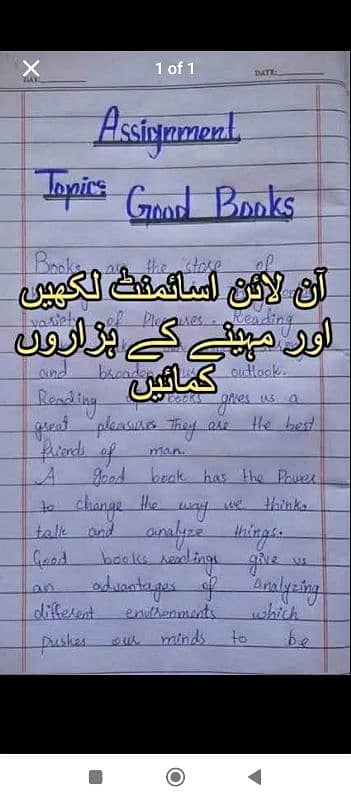 1 of 1
DATE:
Assignment
Topic: Good Books
Books are the store of
آن لائن اسائمنٹ لکھیں
variety of Pleasures. Reading
اور مہینے کے ہزاروں
and broaden outlook.
کمائیں
Reading books gives us a
great pleasures They are the best
friends of man.
A good book has the Power
to change the way we think,
talk and analyze things.
Good books readings give us
an advantages of Analyzing
different environments which
pushes our minds to be